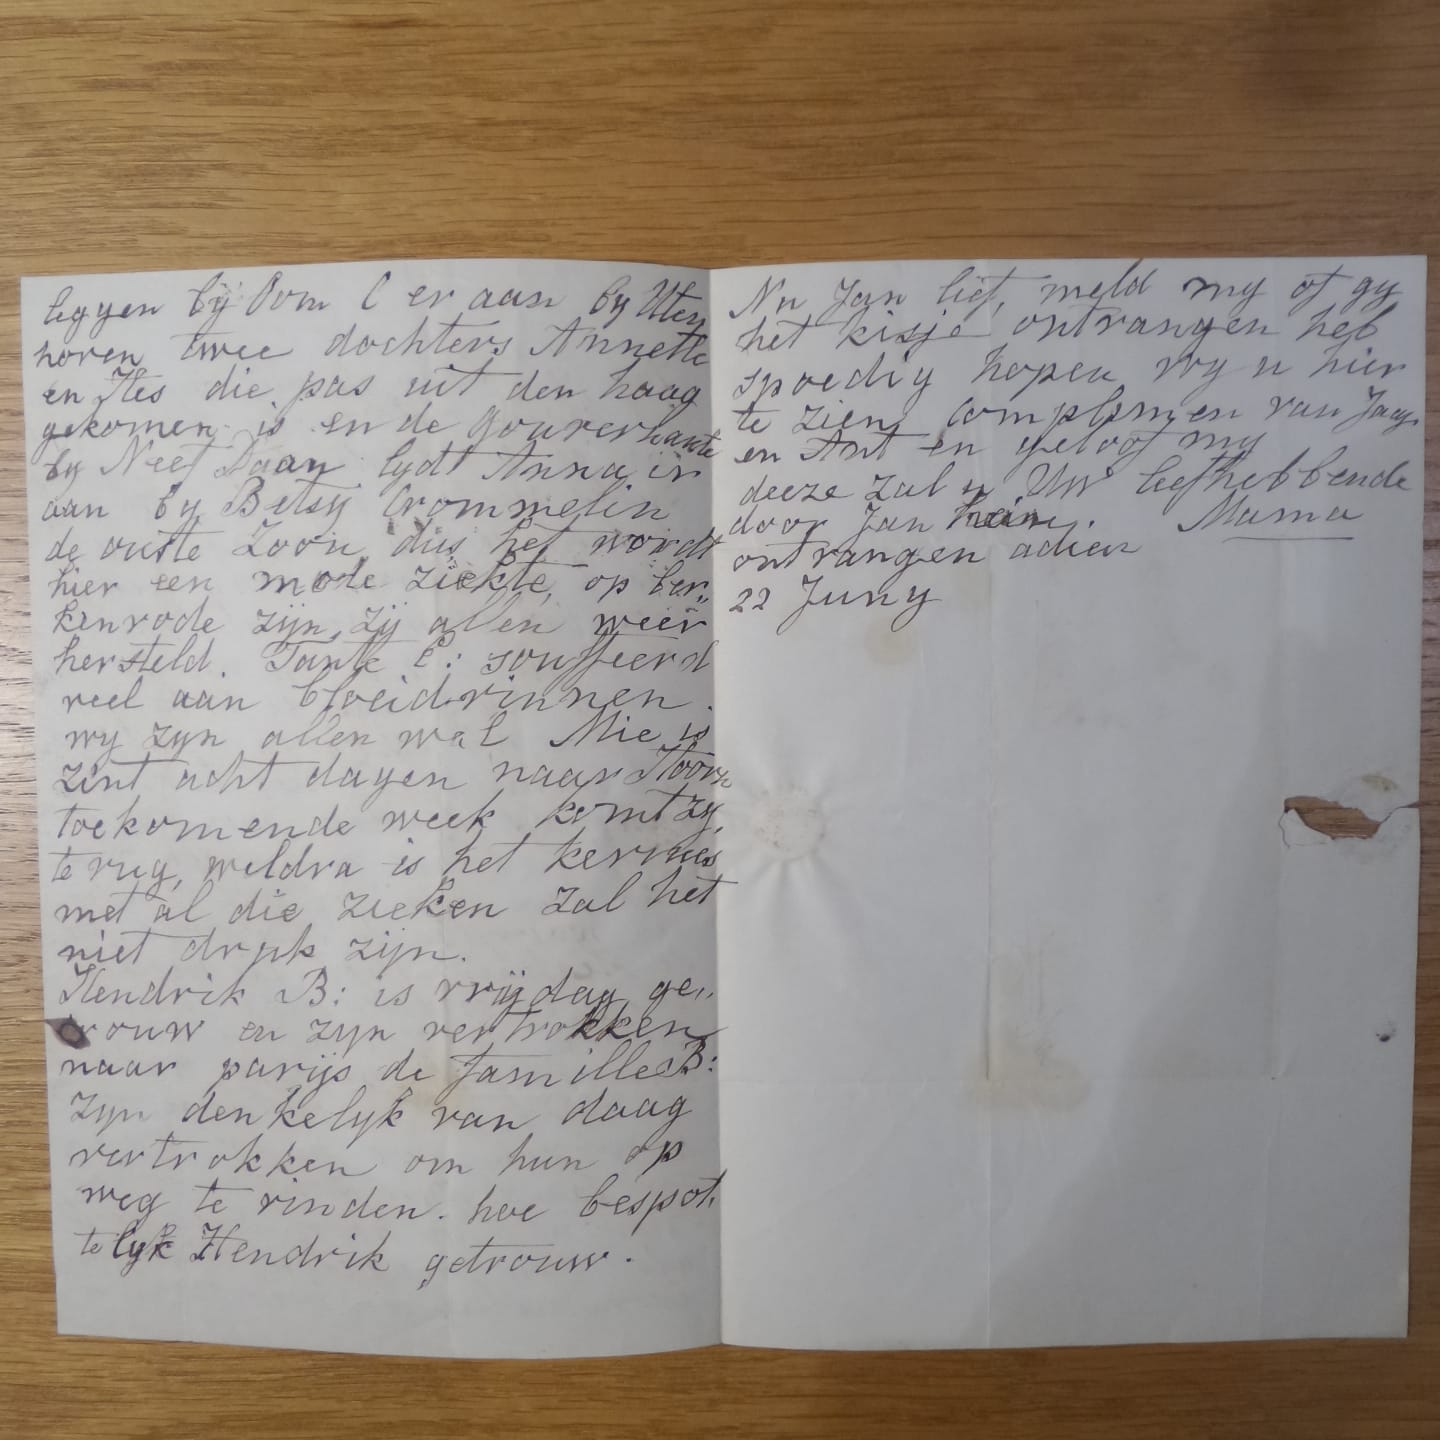 leggen bij Oom C er aan by Uten
hoven twee dochters Annette
en Kes die pas uit den haag
gekomen is en de gouvernante
by Neef Daan lydt Anna er
aan by Betsy Crommelin
de ouste Zoon dus het wordt
hier een mode ziekte, op ber„
kenrode zijn zij allen weer
hersteld. Tante C: souffeerd
veel aan bloeidvinnen.
wy zyn allen wel Mie is
zint acht dagen naar Hoorn
toekomende week komt zy
terug, weldra is het kermes
met al die zieken zal het
niet druk zijn.
Hendrik B: is vrijdag ge„
trouw en zyn vertrokken
naar parijs de familleB:
zyn denkelyk van daag
vertrokken om hun op
weg te vinden. hoe bespot„
telyk Hendrik getrouw.
Nu Jan lief, meld my of gy
het kisje ontvangen heb
spoedig hopen wy u hier
te zien, complimen van Jaap
en Ant en geloof my
deeze zal u Uw liefhebbende
door Jan hein. Mama
ontvangen adieu
22 Juny